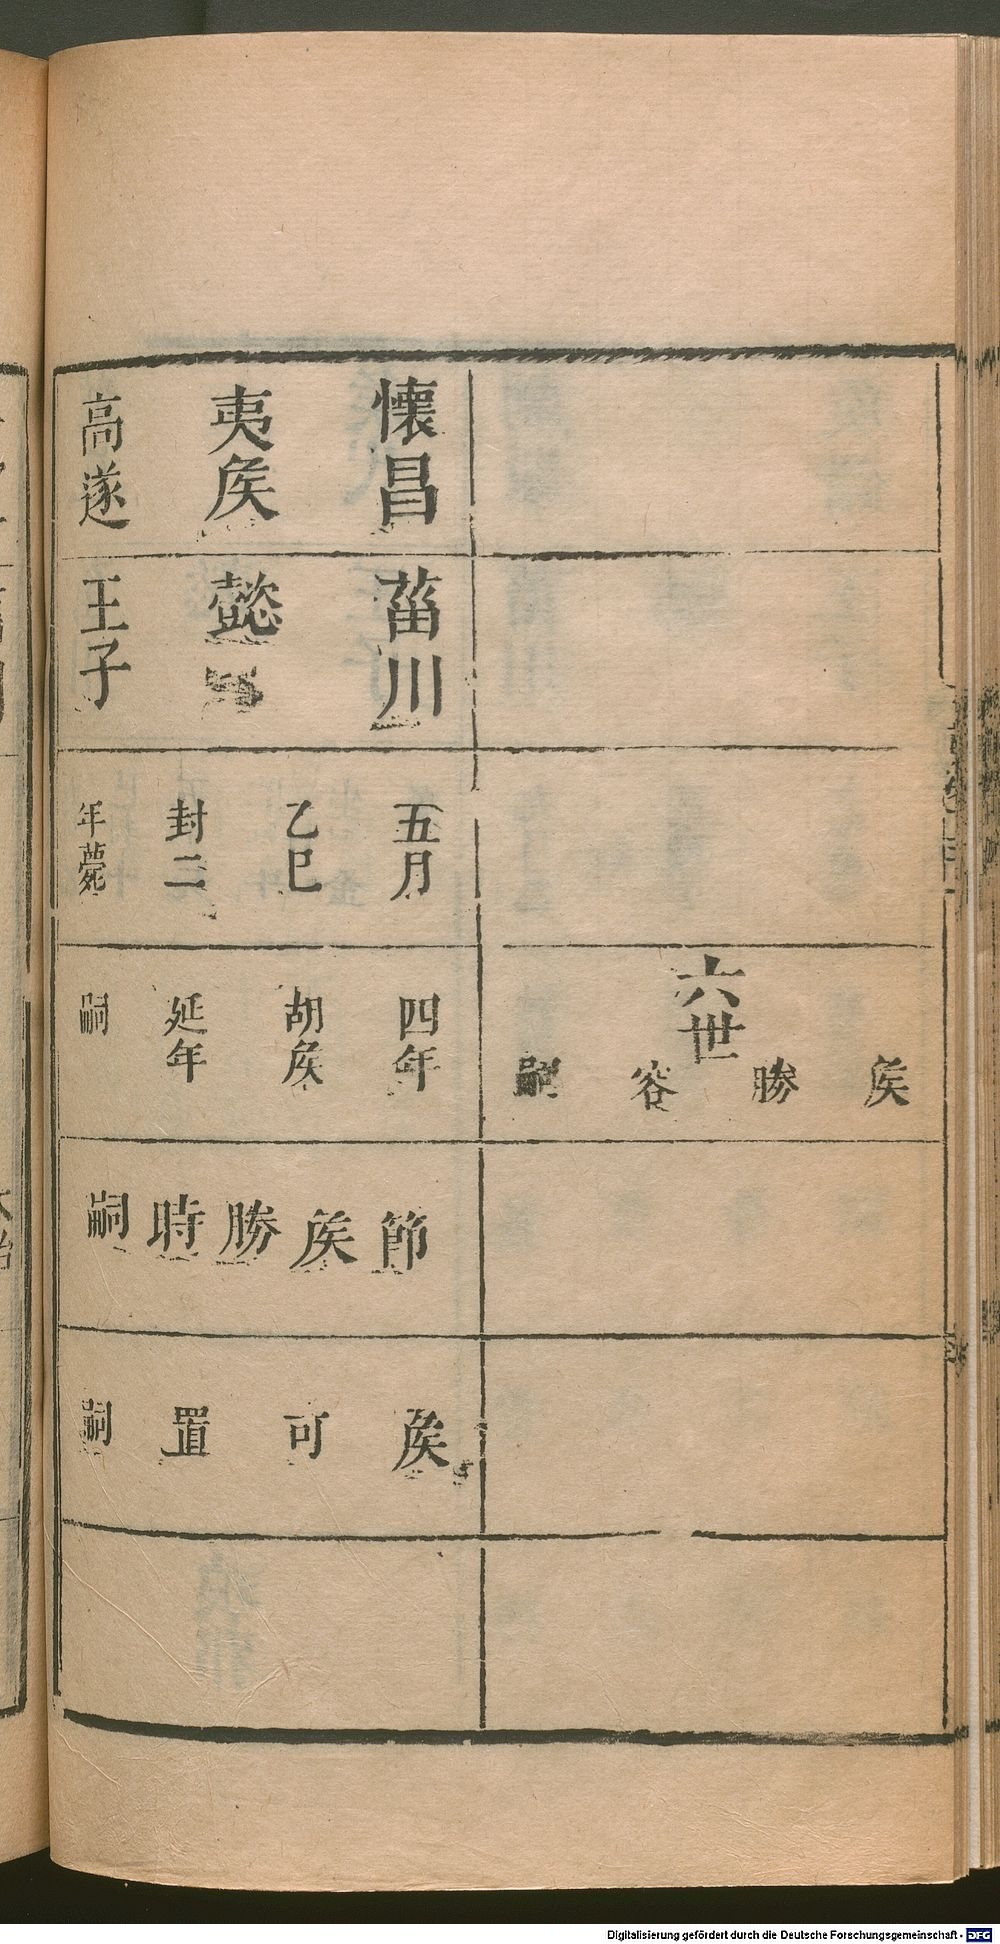 六世
侯
勝
容
嗣
懷昌
夷侯
高遂
菑川
懿
王子
五月
乙巳
封二
年薨
四年
胡侯
延年
嗣
節
侯
勝
時
嗣
侯
可
置
嗣
Digitalisierung gefördert durch die Deutsche Forschungsgemeinschaft - DFG